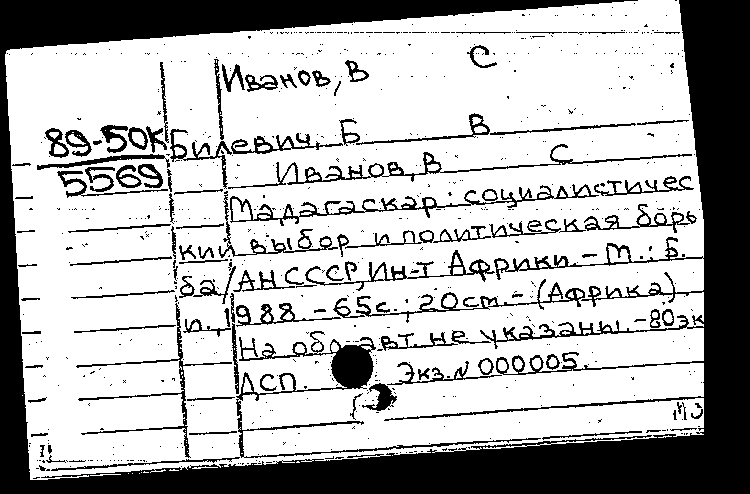 Иванов, В С
89-50К Билевич, Б В
5569 Иванов, В С
Мадагаскар: социалистичес
кий выбор и политическая борь
ба/АН СССР, Ин-т Африки.-М.: Б.
и., 1988.-65с.; 20см.-(Африка).
На обл. авт. не указаны.-80эк
ДСП. Экз. № 000005.